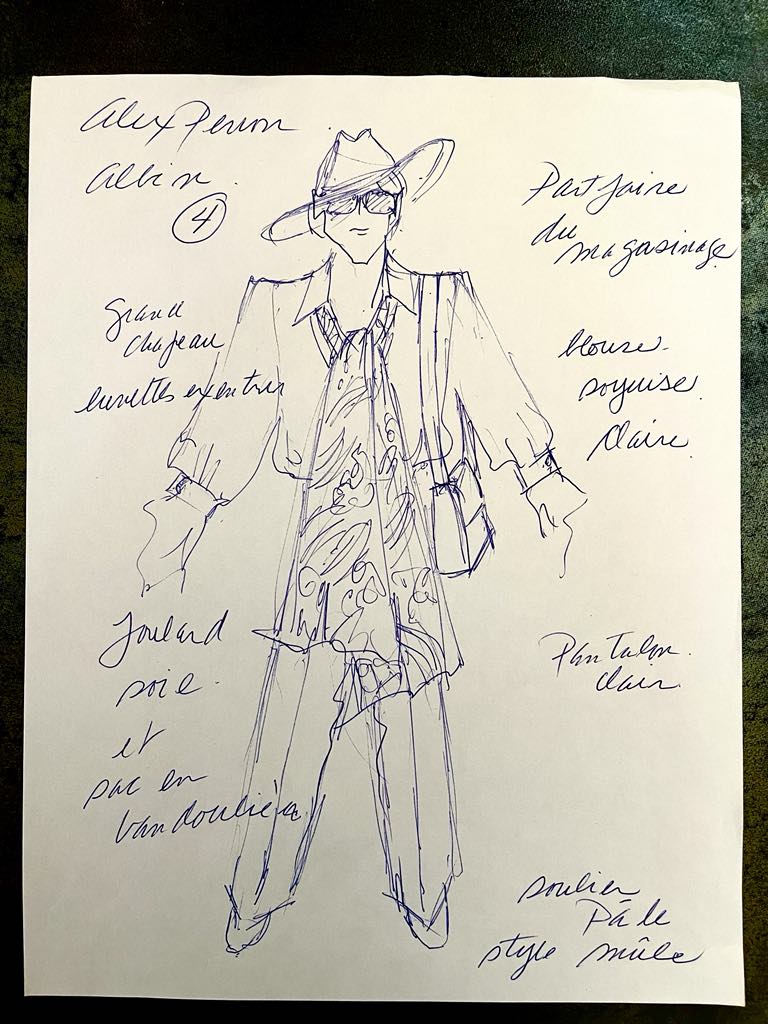 Alex Perron
Albin
4
Part faire
du
magasinage
Grand
chapeau
lunettes excentric
blouse
soyeuse
Claire
Foulard
soie
et
sac en
bandoulière
Pantalon
clair
soulier
Pâle
style mûle